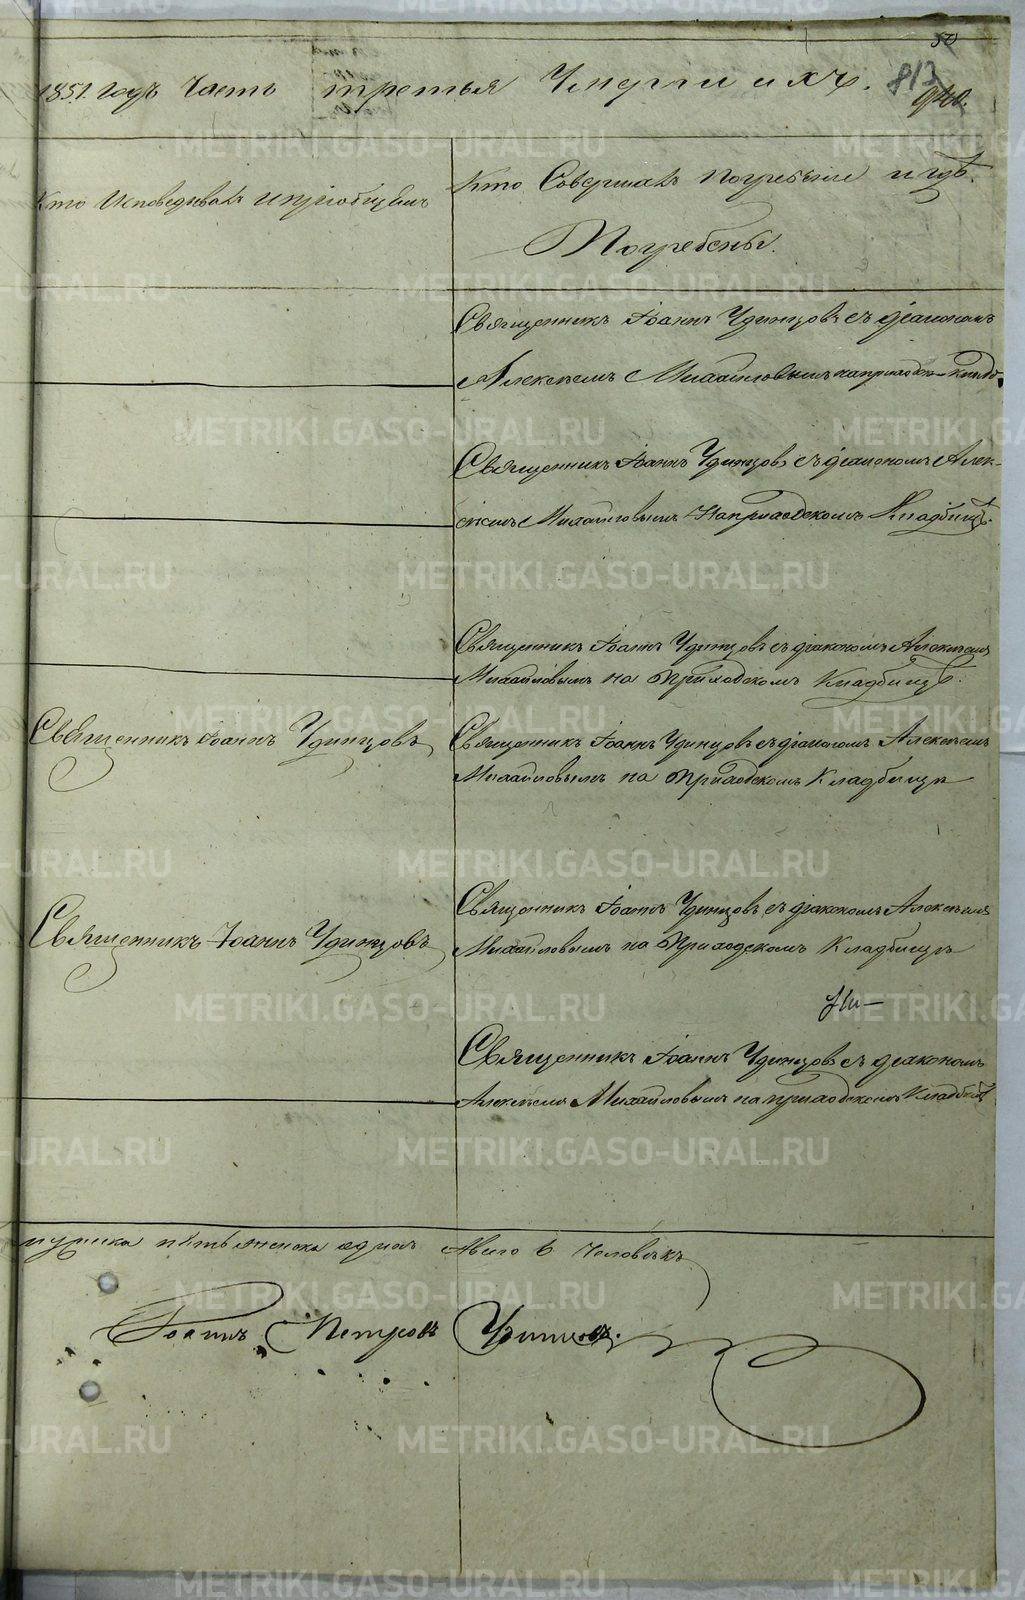 50
1851. годъ Часть третья Умершихъ.
813
Кто Исповедывалъ и пріобщалъ
Кто Совершалъ Погребеніе и гдѣ
Погребены.
Священникъ Іоаннъ Удинцовъ съ діакономъ
Алексѣемъ Михайловымъ на приходском
Священникъ Іоаннъ Удинцовъ съ діакономъ Алек-
сѣемъ Михайловымъ На приходскомъ Кладбищѣ.
Священникъ Іоаннъ Удинцовъ съ діакономъ Алексѣемъ
Михайловымъ на приходскомъ Кладбищѣ.
Священникъ Іоаннъ Удинцовъ
Священникъ Іоаннъ Удинцовъ съ діакономъ Алексѣемъ
Михайловымъ на приходскомъ Кладбищѣ
Священникъ Іоаннъ Удинцовъ
Священникъ Іоаннъ Удинцовъ съ діакономъ Алексѣемъ
Михайловымъ на Приходскомъ Кладбищѣ
Священникъ Іоаннъ Удинцовъ съ діакономъ
Алексѣемъ Михайловымъ на приходскомъ Кладбищѣ
мужеска пять женска одинъ Авсего 6 человѣкъ
Іоаннъ Петровъ Удинцовъ.
METRIKI.GASO-URAL.RU